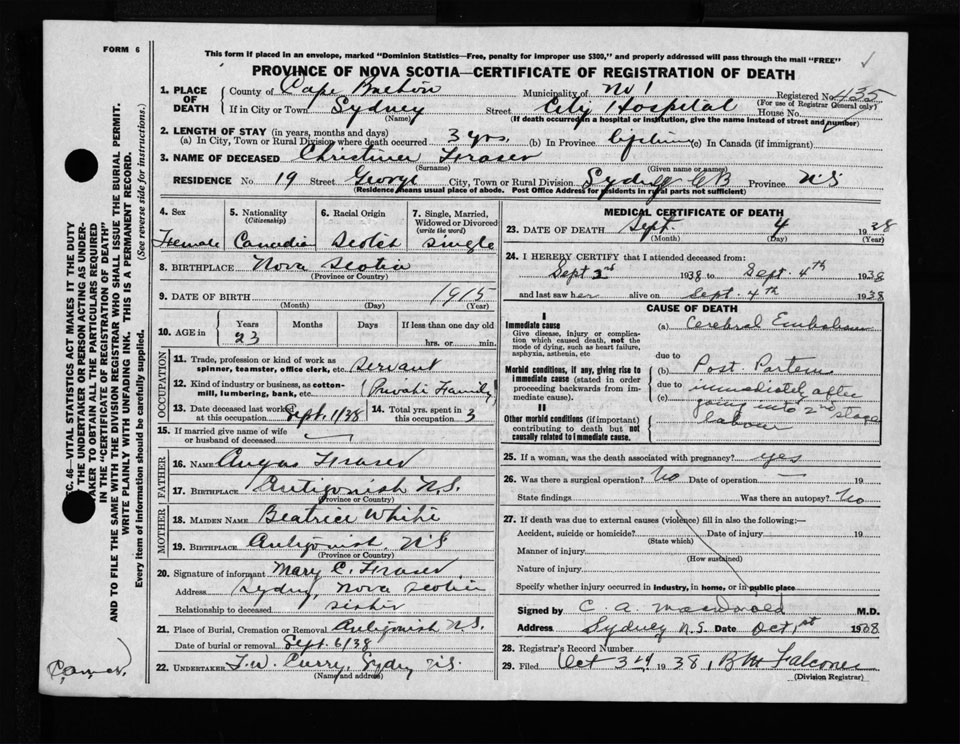 FORM 6
This form if placed in an envelope, marked "Dominion Statistics—Free, penalty for improper use $300," and properly addressed will pass through the mail "FREE"
PROVINCE OF NOVA SCOTIA—CERTIFICATE OF REGISTRATION OF DEATH
1. PLACE OF DEATH County of Cape Breton Municipality of No 1 Registered No. 435
(For use of Registrar General only)
If in City or Town Sydney Street City Hospital House No.
(Name) (If death occurred in a hospital or institution, give the name instead of street and number)
2. LENGTH OF STAY (in years, months and days)
(a) In City, Town or Rural Division where death occurred 3 yrs. (b) In Province lifetime (c) In Canada (if immigrant)
3. NAME OF DECEASED Christine Fraser
(Surname) (Given name or names)
RESIDENCE No. 19 Street George City, Town or Rural Division Sydney CB Province N.S
(Residence means usual place of abode. Post Office Address for residents in rural parts not sufficient)
4. Sex 5. Nationality 6. Racial Origin 7. Single, Married, Widowed or Divorced
(Citizenship) (write the word)
Female Canadian Scotch single
8. BIRTHPLACE Nova Scotia
(Province or Country)
9. DATE OF BIRTH 1915
(Month) (Day) (Year)
10. AGE in Years Months Days If less than one day
23 hrs. or min.
OCCUPATION
11. Trade, profession or kind of work as spinner, teamster, office clerk, etc. Servant
12. Kind of industry or business, as cotton-mill, lumbering, bank, etc. (Private Family)
13. Date deceased last worked at this occupation Sept. 1/38 14. Total yrs. spent in this occupation 3
15. If married give name of wife or husband of deceased
FATHER
16. NAME Angus Fraser
17. BIRTHPLACE Antigonish N.S.
(Province or Country)
MOTHER
18. MAIDEN NAME Beatrice White
19. BIRTHPLACE Antigonish, N.S
(Province or Country)
20. Signature of informant Mary C. Fraser
Address Sydney, Nova Scotia
Relationship to deceased sister
21. Place of Burial, Cremation or Removal Antigonish N.S.
Date of burial or removal Sept. 6/38
22. UNDERTAKER T.W. Curry, Sydney N.S.
(Name and address)
MEDICAL CERTIFICATE OF DEATH
23. DATE OF DEATH Sept. 4 1938
(Month) (Day) (Year)
24. I HEREBY CERTIFY that I attended deceased from:
Sept 2nd 1938 to Sept. 4th 1938
and last saw her alive on Sept. 4th 1938
CAUSE OF DEATH
I
Immediate cause (a) Cerebral Embolism
Give disease, injury or complication which caused death, not the mode of dying, such as heart failure, asphyxia, asthenia, etc
due to
Morbid conditions, if any, giving rise to immediate cause (stated in order proceeding backwards from immediate cause).
(b) Post Partem
due to immediately after
(c) going into 2nd stage
labour
II
Other morbid conditions (if important) contributing to death but not causally related to immediate cause.
25. If a woman, was the death associated with pregnancy? yes
26. Was there a surgical operation? No Date of operation — 19
State findings Was there an autopsy? No
27. If death was due to external causes (violence) fill in also the following:—
Accident, suicide or homicide? Date of injury 19
(State which)
Manner of injury
(How sustained)
Nature of injury
Specify whether injury occurred in industry, in home, or in public place
Signed by C. A. Macdonald M.D.
Address Sydney N.S. Date Oct 1st 1938
28. Registrar's Record Number
29. Filed Oct 3rd 1938,
(Division Registrar)
SEC. 46—VITAL STATISTICS ACT MAKES IT THE DUTY
OF THE UNDERTAKER OR PERSON ACTING AS UNDERTAKER TO OBTAIN ALL THE PARTICULARS REQUIRED
IN THE "CERTIFICATE OF REGISTRATION OF DEATH"
AND TO FILE THE SAME WITH THE DIVISION REGISTRAR WHO SHALL ISSUE THE BURIAL PERMIT.
WRITE PLAINLY WITH UNFADING INK. THIS IS A PERMANENT RECORD.
Every item of information should be carefully supplied. (See reverse side for instructions.)